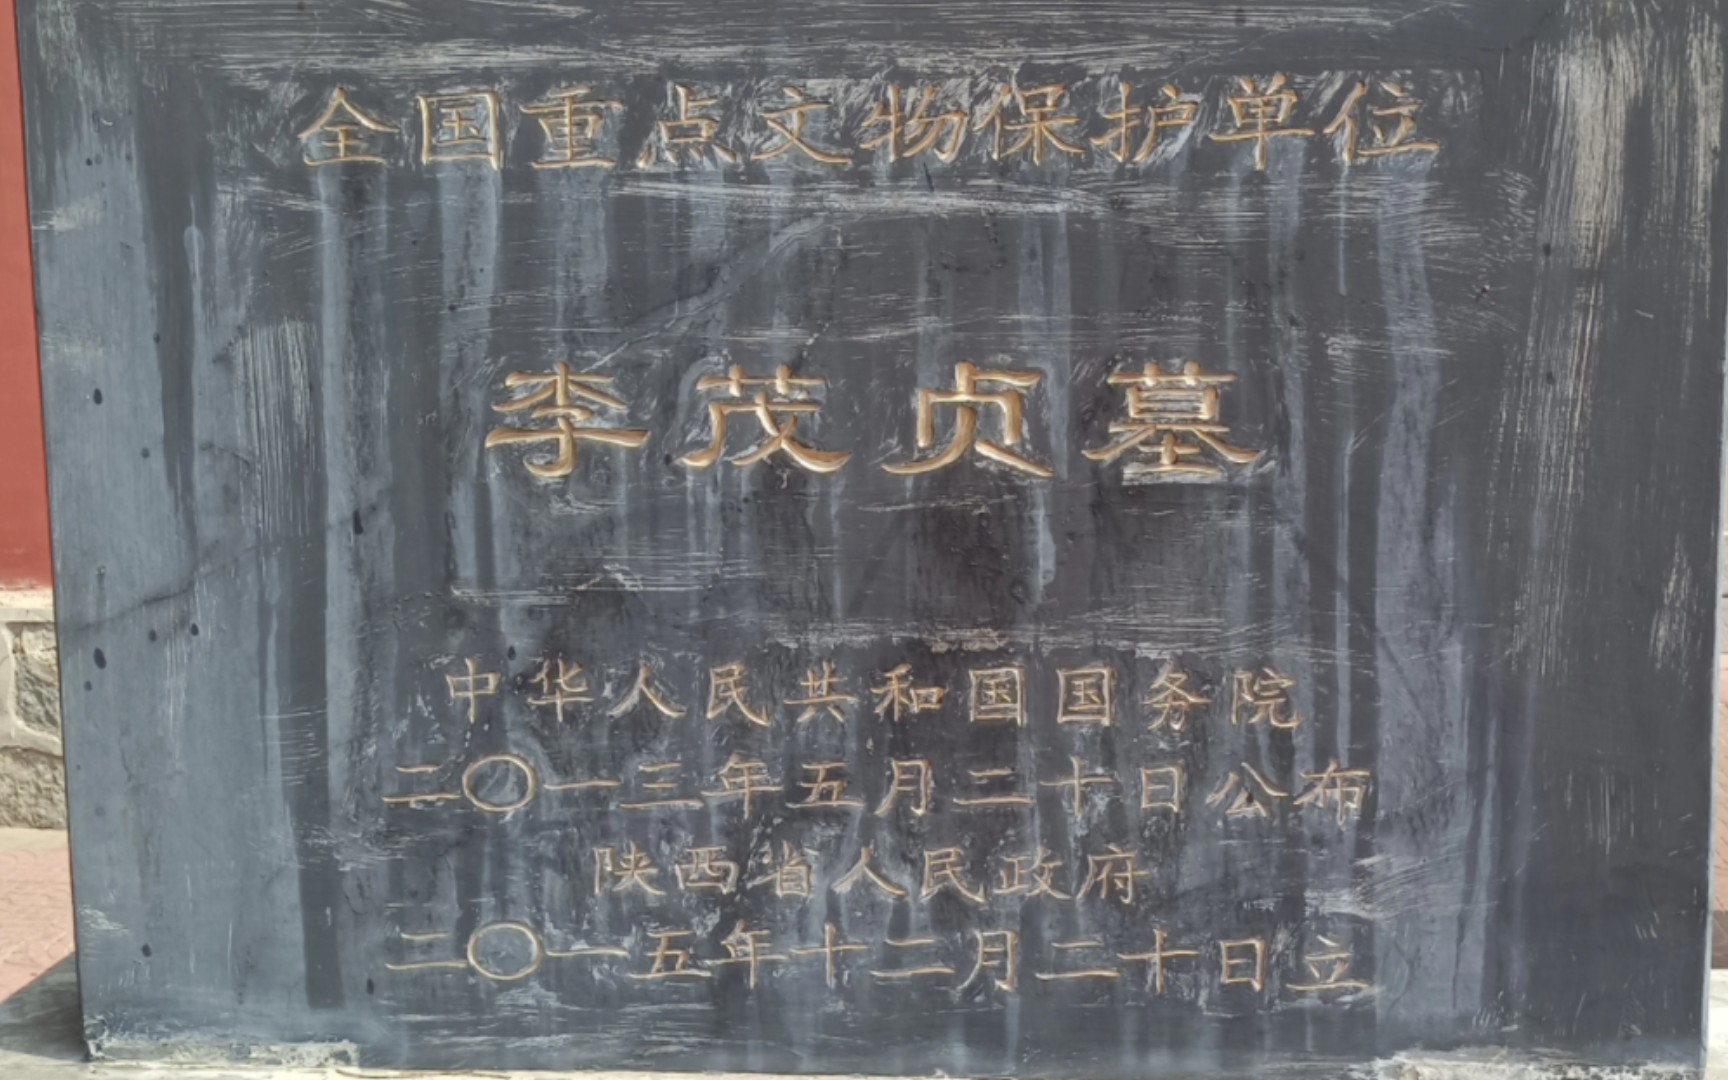 全国重点文物保护单位
李茂贞墓
中华人民共和国国务院
二〇一三年五月二十日公布
陕西省人民政府
二〇一五年十二月二十日立